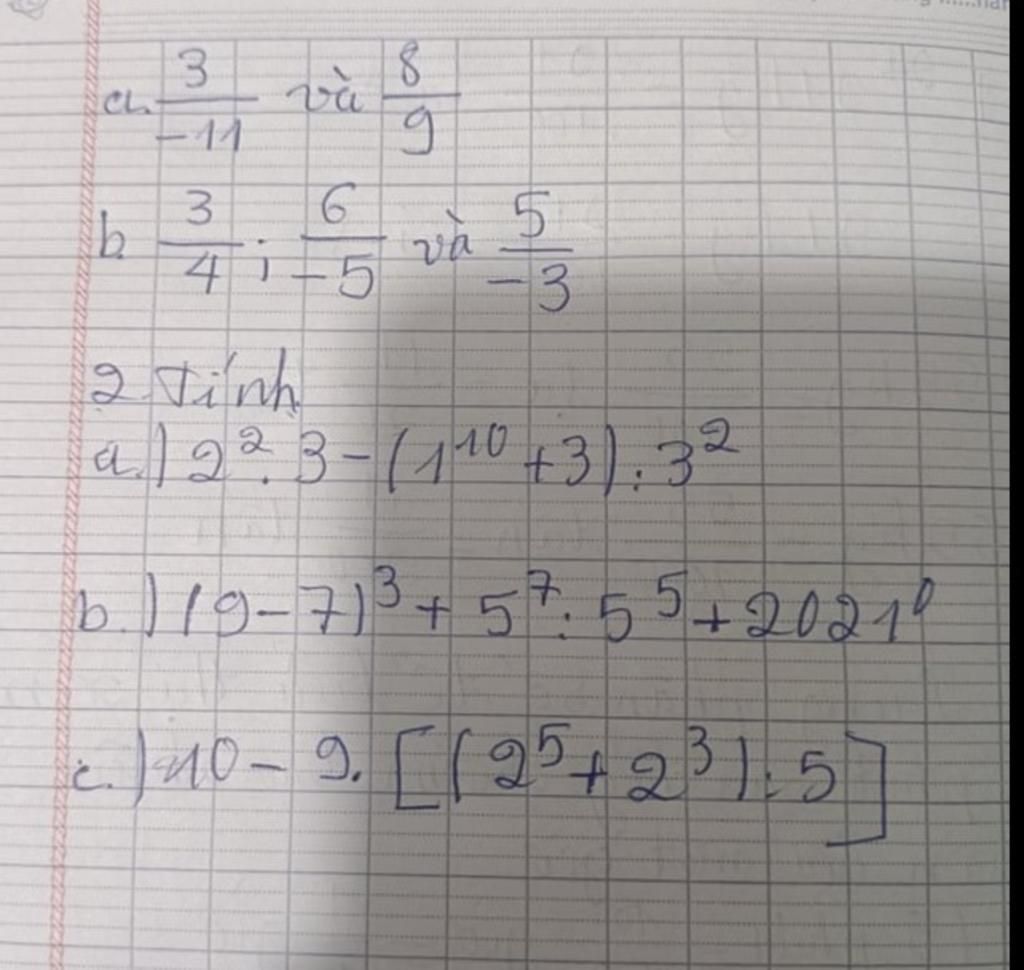 a. 3/-11 và 8/9
b. 3/4 ; 6/-5 và 5/-3
2. Tính
a.) 2² . 3 - (1¹⁰ + 3) : 3²
b.) (9 - 7)³ + 5⁷ : 5⁵ + 2021⁰
c.) 10 - 9. [(2⁵ + 2³) : 5]